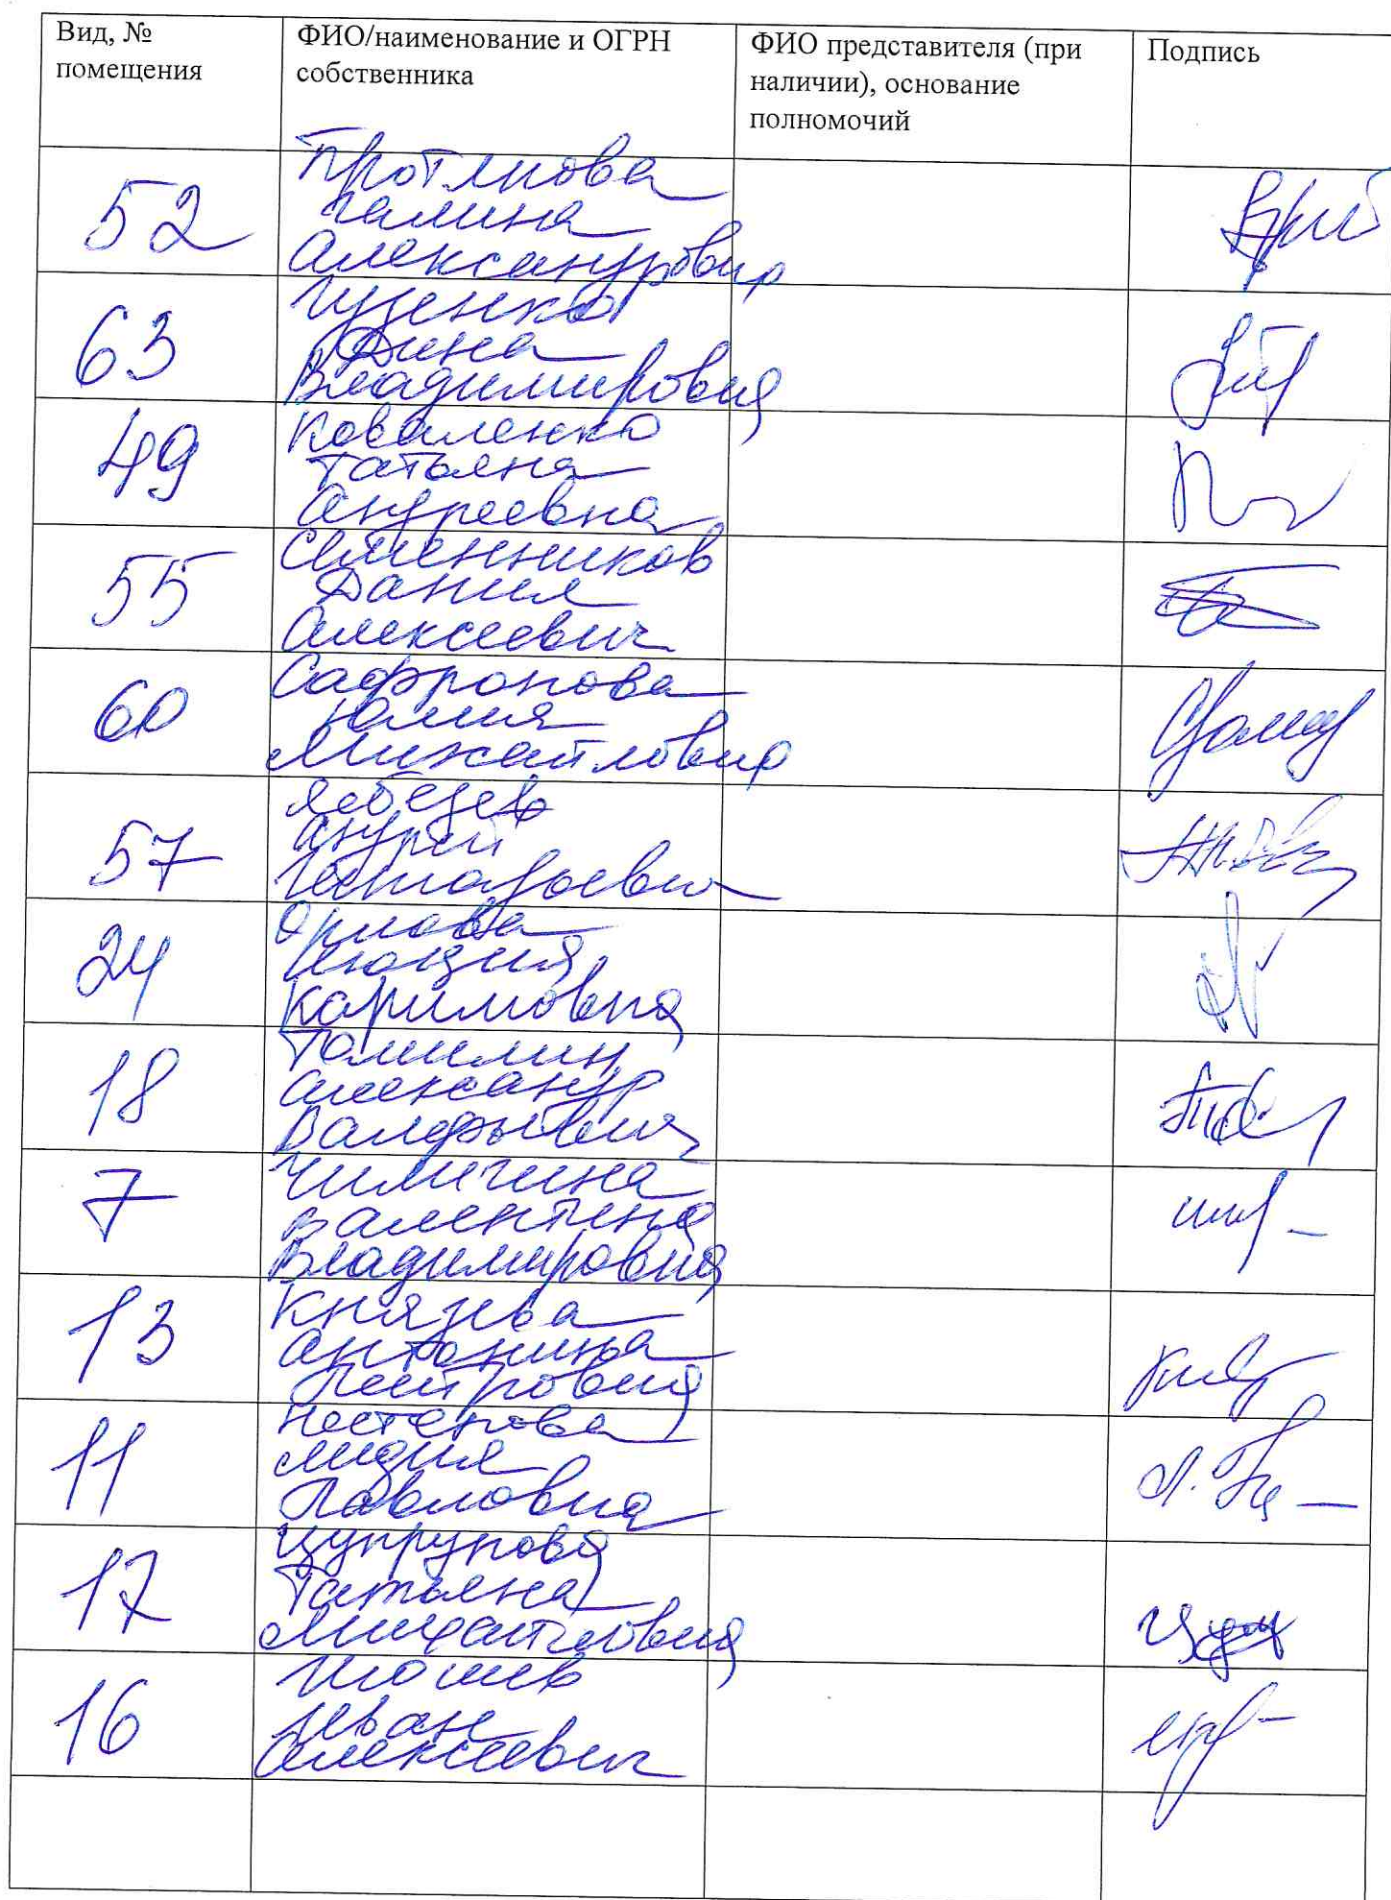 Вид, № помещения
ФИО/наименование и ОГРН собственника
ФИО представителя (при наличии), основание полномочий
Подпись
52
Галина
Александровна
63
Гуценко
Дина
Владимировна
49
Коваленко
Татьяна
Андреевна
55
Семенников
Данил
Алексеевич
60
Сафронова
Юлия
Михайловна
57
Лебедев
Андрей
Геннадьевич
24
Орлова
Люция
Каримовна
18
Томилин
Александр
7
Чиличина
Валентина
Владимировна
13
Князева
Антонина
Петровна
11
Нестерова
Лидия
Павловна
17
Цупрунова
Татьяна
Михайловна
16
Иван
Алексеевич